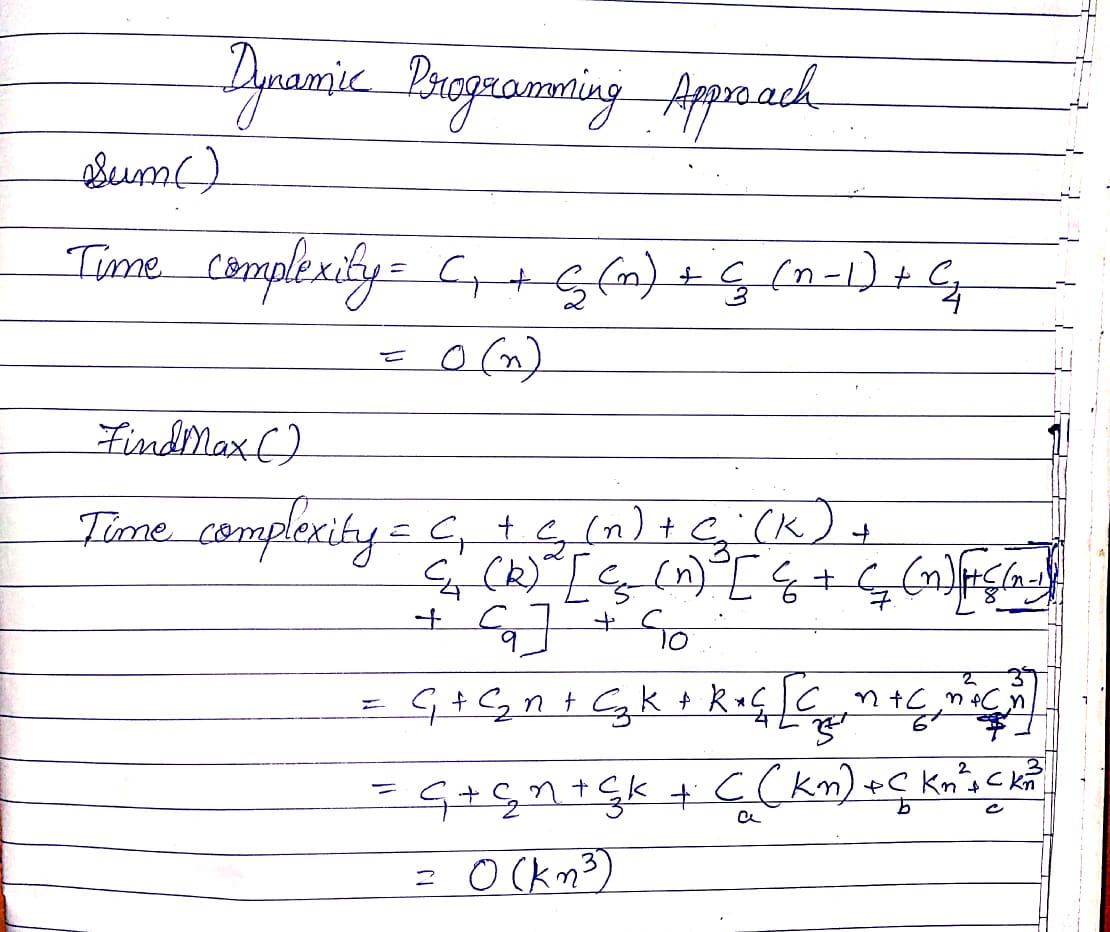 Dynamic Programming Approach
Sum()
Time complexity = C₁ + C₂(n) + C₃(n-1) + C₄
= O(n)
FindMax()
Time complexity = C₁ + C₂(n) + C₃(k) +
C₄(k)[C₅(n)[C₆ + C₇(n)[+C₈(n-1)]
+ C₉] + C₁₀
= C₁ + C₂n + C₃k + k*C₄[C₅'n + C₆'n² + C₇'n³]
= C₁ + C₂n + C₃k + Cₐ(kn) + C_b kn² + C_c kn³
= O(kn³)